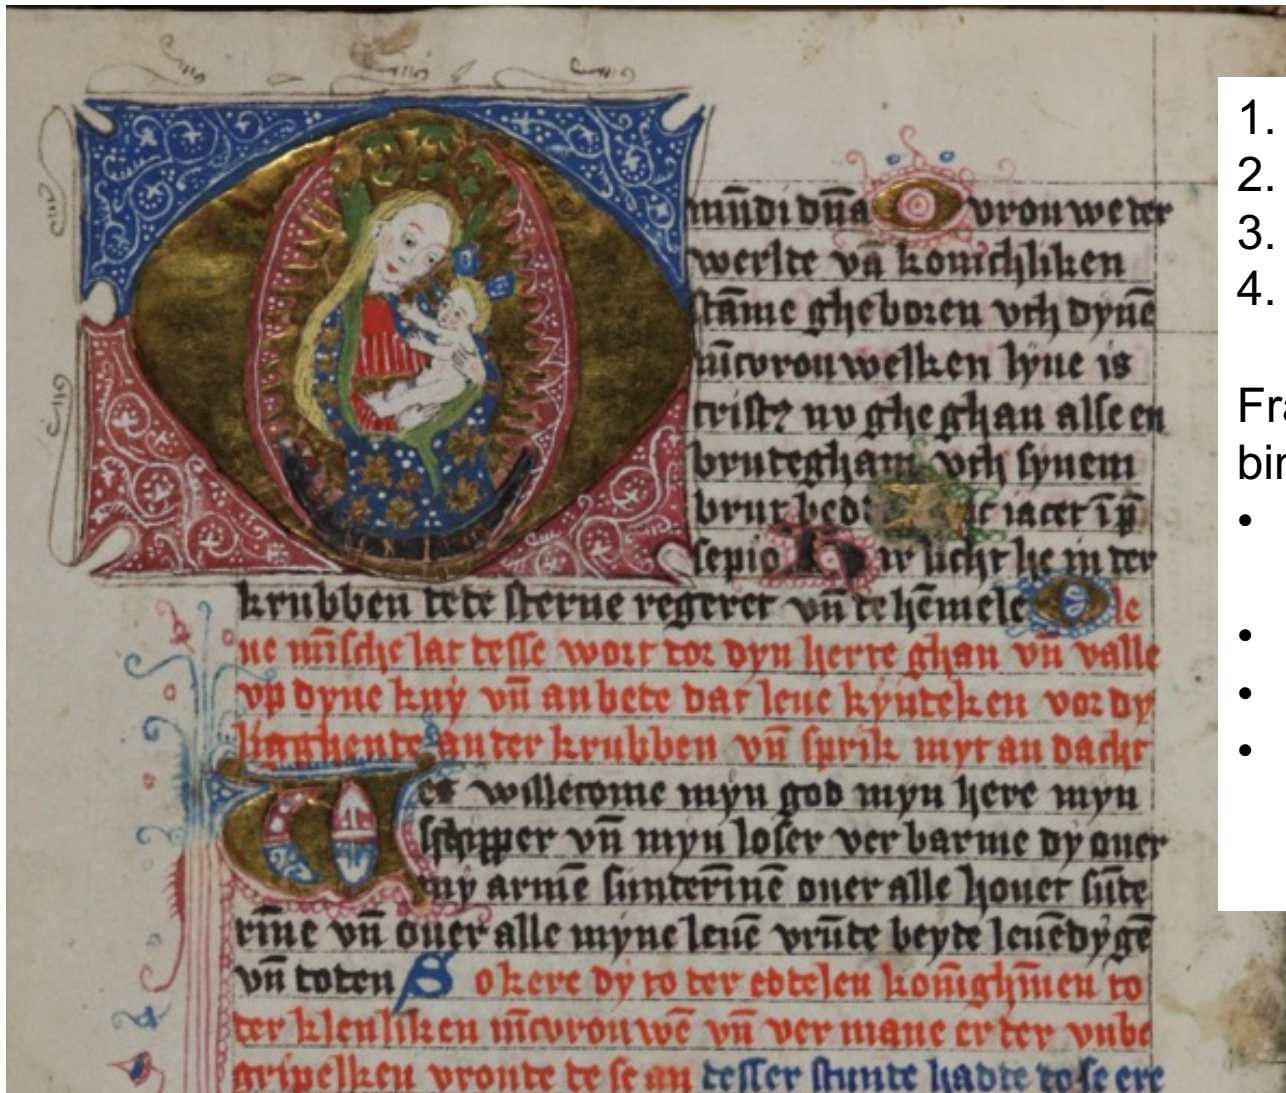 mūdi dūa O vrouwe der
werlte vā konichliken
stāme gheboren vth dynē
iūcvrouwelken lyue is
crist⁊ nv ghe ghan alse en
brutegham vth synem
brut bedde iacet ī p̄
sepio Hir licht he in der
krubben tede sterne regeret vn̄ te hēmele O le
ue mīsche lat tesse wort tor dyn herte ghan vn̄ valle
vp dyne kny vn̄ an bete dat leue kynteken vor dy
ligghente an ter krubben vn̄ sprik myt an dacht
et willecome myn god myn here myn
schipper vn̄ myn loser ver barme dy ouer
my armē sunterīnē ouer alle houet sūte
rīne vn̄ ouer alle myne leuē vrūte beyte leuēdygē
vn̄ toten So kere dy to ter edtelen konīghīnen to
ter klenliken iūcvrouwē vn̄ ver mane er ter vnbe
gripelken vroute te se an tesser stunte hadte to se ere
1.
2.
3.
4.
Fra
bin